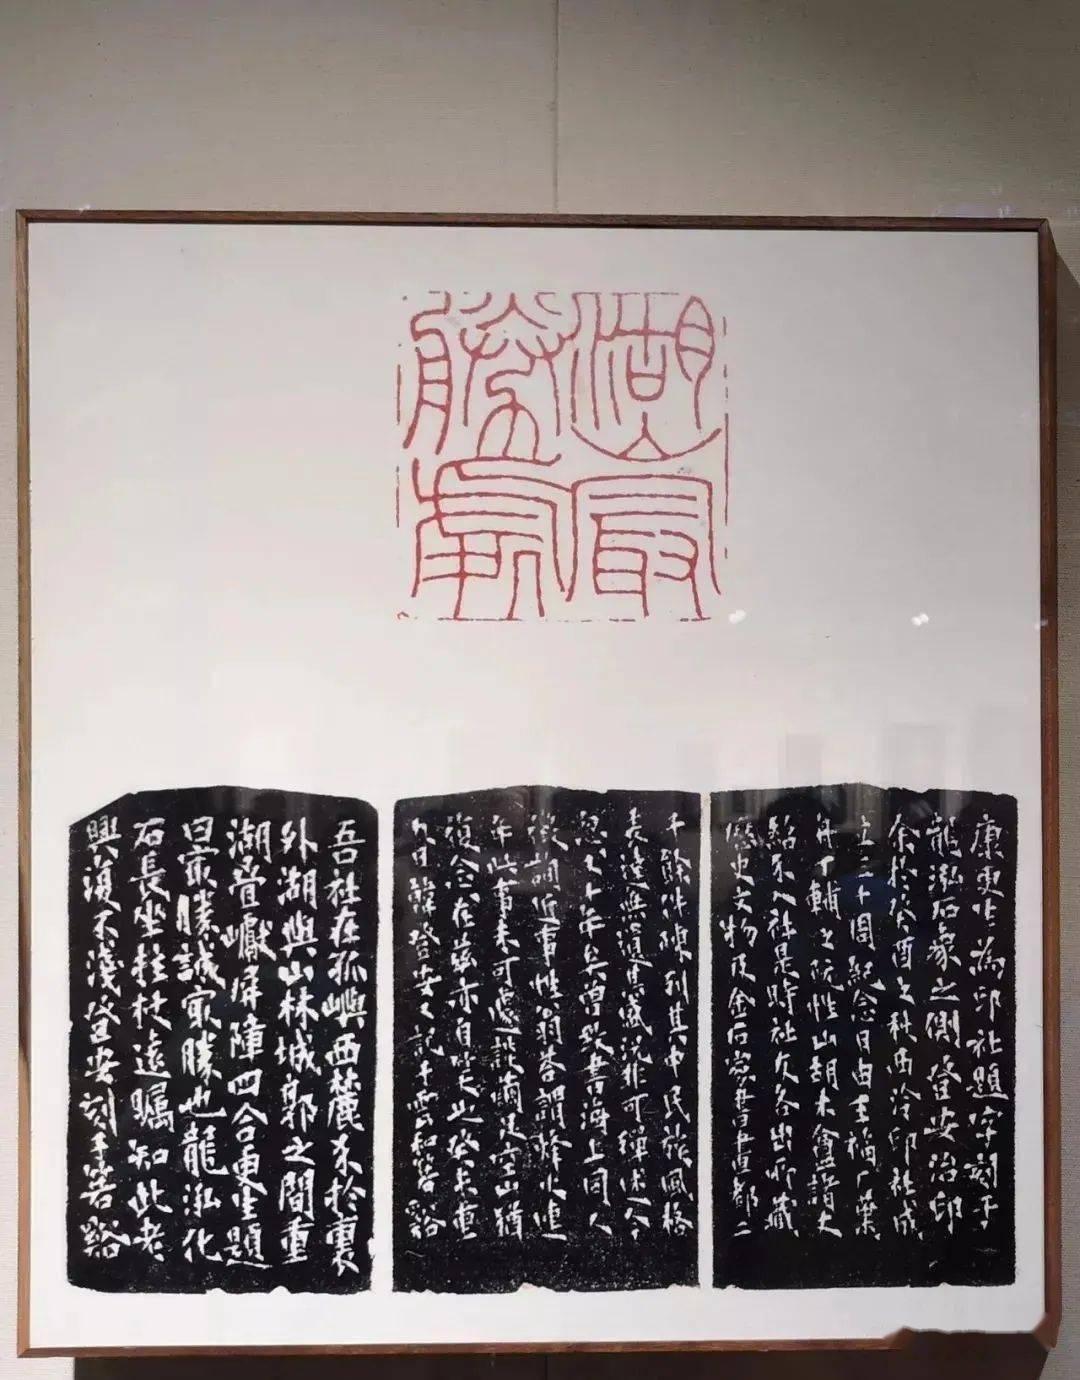 湖山
最
勝處
康更生為印社題字刻于
龍泓石象之側登安治印
余於癸酉之秋西泠印社成
立三十周紀念日由王福厂葉
舟丁輔之阮性山胡朮倉諸丈
紹介入社是時社友各出所藏
歷史文物及金石家書畫都二
千餘件陳列其中民族風格
表達無遺其盛況非可殫述今
忽十年矣曾致書海上同人
徵詢近事性翁答謂烽火連
年此事未可遽談蘭足空山猶
復念念在茲亦自笑也癸未重
九日韓登安又記于雲和箬谿
吾社在孤嶼西麓介於裏
外湖與山林城郭之間重
湖疊巘屏障四合更生題
曰最勝誠最勝也龍泓化
石長坐拄杖遠矚知此老
興復不淺登安刻于箬谿